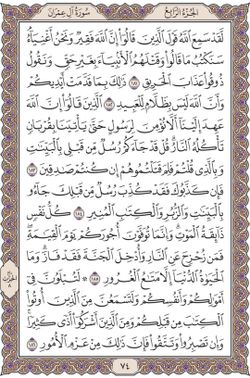 سُورَةُ آلِ عِمْرَان
الجُزْءُ الرَّابِعُ
لَّقَدْ سَمِعَ ٱللَّهُ قَوْلَ ٱلَّذِينَ قَالُوٓا۟ إِنَّ ٱللَّهَ فَقِيرٌ وَنَحْنُ أَغْنِيَآءُ
سَنَكْتُبُ مَا قَالُوا۟ وَقَتْلَهُمُ ٱلْأَنۢبِيَآءَ بِغَيْرِ حَقٍّ وَنَقُولُ
ذُوقُوا۟ عَذَابَ ٱلْحَرِيقِ ١٨١ ذَٰلِكَ بِمَا قَدَّمَتْ أَيْدِيكُمْ
وَأَنَّ ٱللَّهَ لَيْسَ بِظَلَّامٍ لِّلْعَبِيدِ ١٨٢ ٱلَّذِينَ قَالُوٓا۟ إِنَّ ٱللَّهَ
عَهِدَ إِلَيْنَآ أَلَّا نُؤْمِنَ لِرَسُولٍ حَتَّىٰ يَأْتِيَنَا بِقُرْبَانٍ
تَأْكُلُهُ ٱلنَّارُ قُلْ قَدْ جَآءَكُمْ رُسُلٌ مِّن قَبْلِى بِٱلْبَيِّنَٰتِ
وَبِٱلَّذِى قُلْتُمْ فَلِمَ قَتَلْتُمُوهُمْ إِن كُنتُمْ صَٰدِقِينَ ١٨٣
فَإِن كَذَّبُوكَ فَقَدْ كُذِّبَ رُسُلٌ مِّن قَبْلِكَ جَآءُو
بِٱلْبَيِّنَٰتِ وَٱلزُّبُرِ وَٱلْكِتَٰبِ ٱلْمُنِيرِ ١٨٤ كُلُّ نَفْسٍ
ذَآئِقَةُ ٱلْمَوْتِ وَإِنَّمَا تُوَفَّوْنَ أُجُورَكُمْ يَوْمَ ٱلْقِيَٰمَةِ
فَمَن زُحْزِحَ عَنِ ٱلنَّارِ وَأُدْخِلَ ٱلْجَنَّةَ فَقَدْ فَازَ وَمَا
ٱلْحَيَوٰةُ ٱلدُّنْيَآ إِلَّا مَتَٰعُ ٱلْغُرُورِ ١٨٥ ۞ لَتُبْلَوُنَّ فِىٓ
أَمْوَٰلِكُمْ وَأَنفُسِكُمْ وَلَتَسْمَعُنَّ مِنَ ٱلَّذِينَ أُوتُوا۟
ٱلْكِتَٰبَ مِن قَبْلِكُمْ وَمِنَ ٱلَّذِينَ أَشْرَكُوٓا۟ أَذًى كَثِيرًا
وَإِن تَصْبِرُوا۟ وَتَتَّقُوا۟ فَإِنَّ ذَٰلِكَ مِنْ عَزْمِ ٱلْأُمُورِ ١٨٦
٧٤